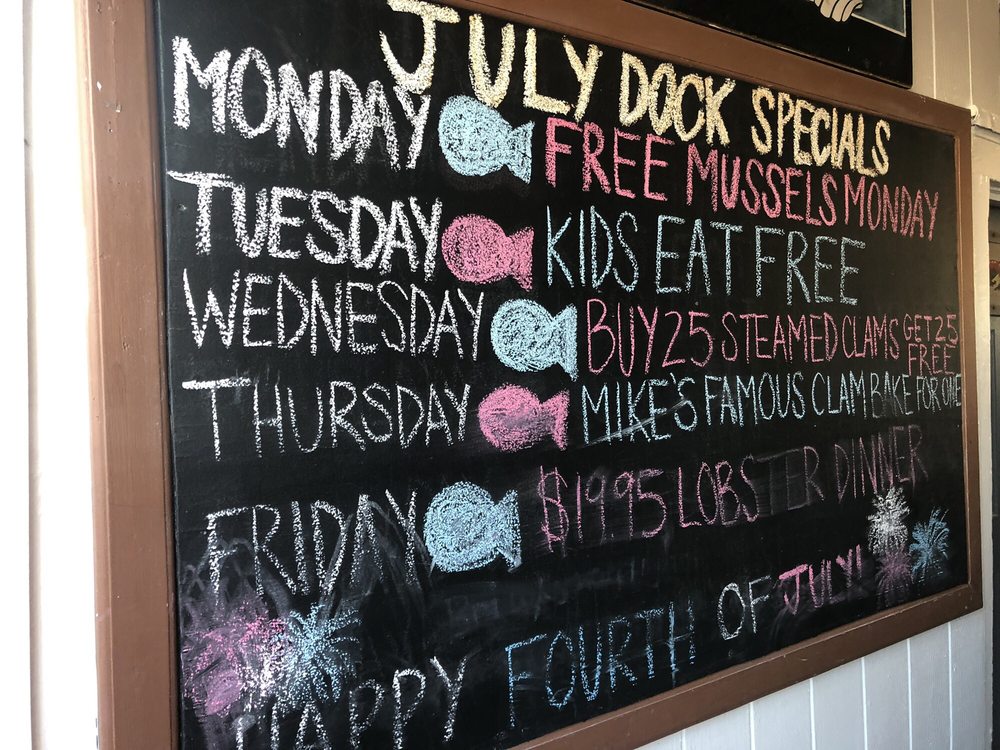 JULY DOCK SPECIALS
MONDAY FREE MUSSELS MONDAY
TUESDAY KIDS EAT FREE
WEDNESDAY BUY 25 STEAMED CLAMS GET 25 FREE
THURSDAY MIKE'S FAMOUS CLAM BAKE FOR ONE
FRIDAY $19.95 LOBSTER DINNER
HAPPY FOURTH OF JULY!